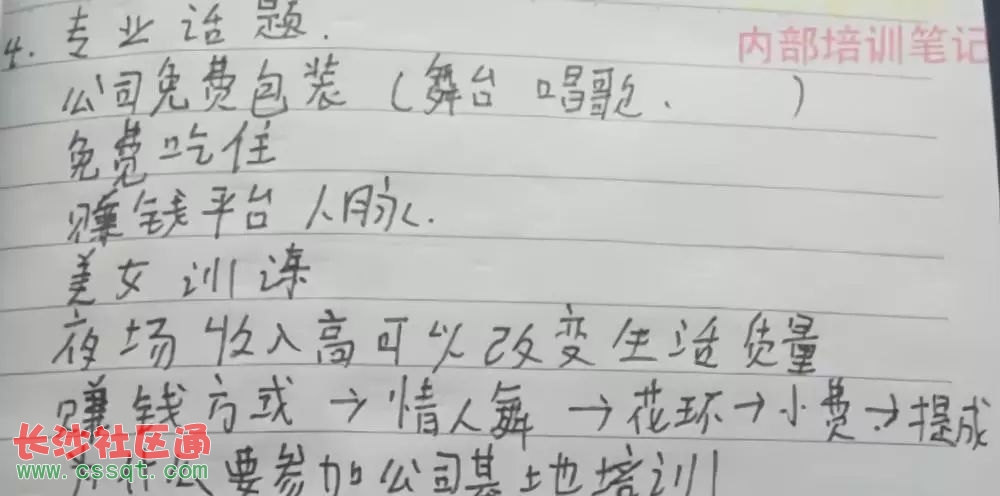 4. 专业话题.
内部培训笔记
公司免费包装（舞台 唱歌. ）
免费吃住
赚钱平台 人脉.
美女训练
夜场收入高可以改变生活质量
赚钱方式 → 情人舞 → 花环 → 小费 → 提成
要参加公司基地培训
长沙社区通
www.cssqt.com